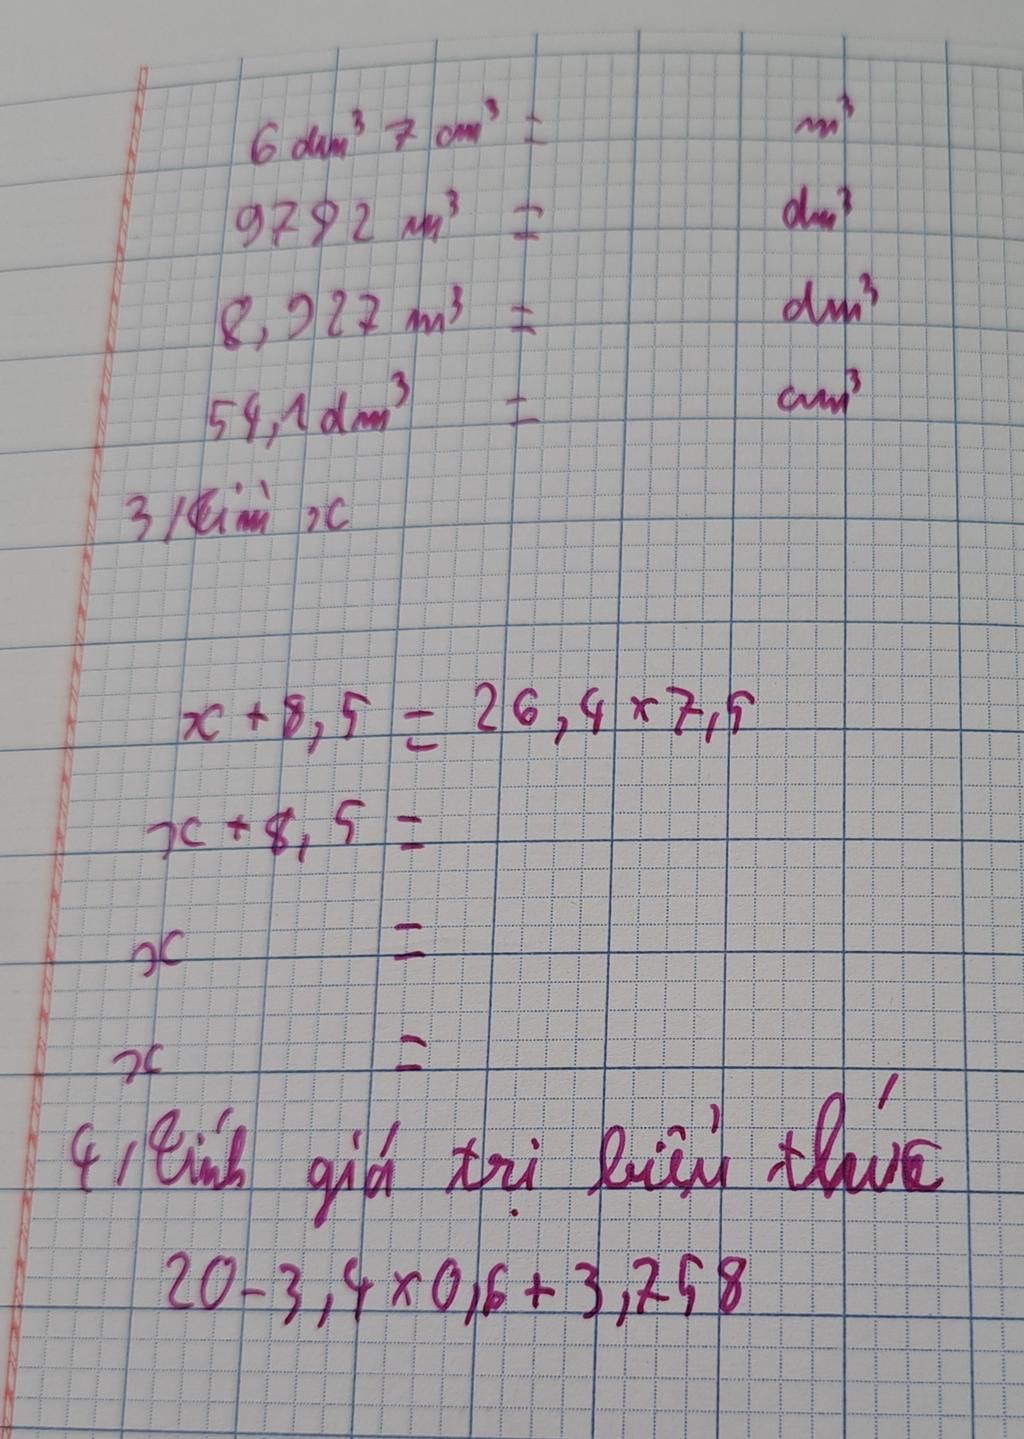 6 dm³ 7 cm³ = m³
9792 m³ = dm³
8,927 m³ = dm³
54,1 dm³ = cm³
3/ tìm x
x + 8,5 = 26,4 × 7,5
x + 8,5 =
x =
x =
4, tính giá trị biểu thức
20 - 3,4 × 0,6 + 3,758